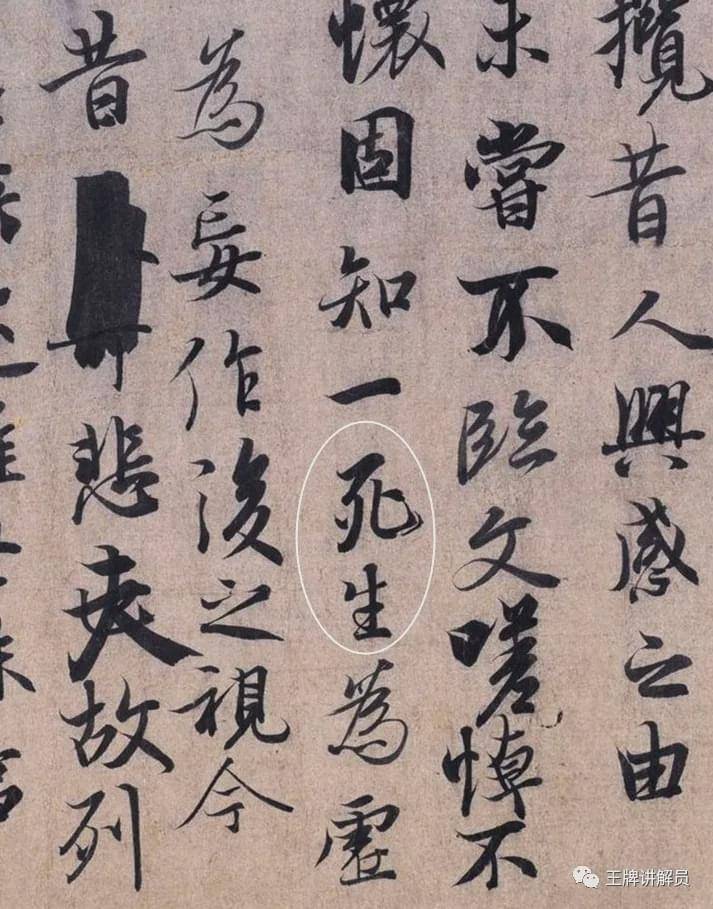 攬昔人興感之由
未嘗不臨文嗟悼不
懷固知一死生為虛
為妄作後之視今
昔悲夫故列
王牌讲解员